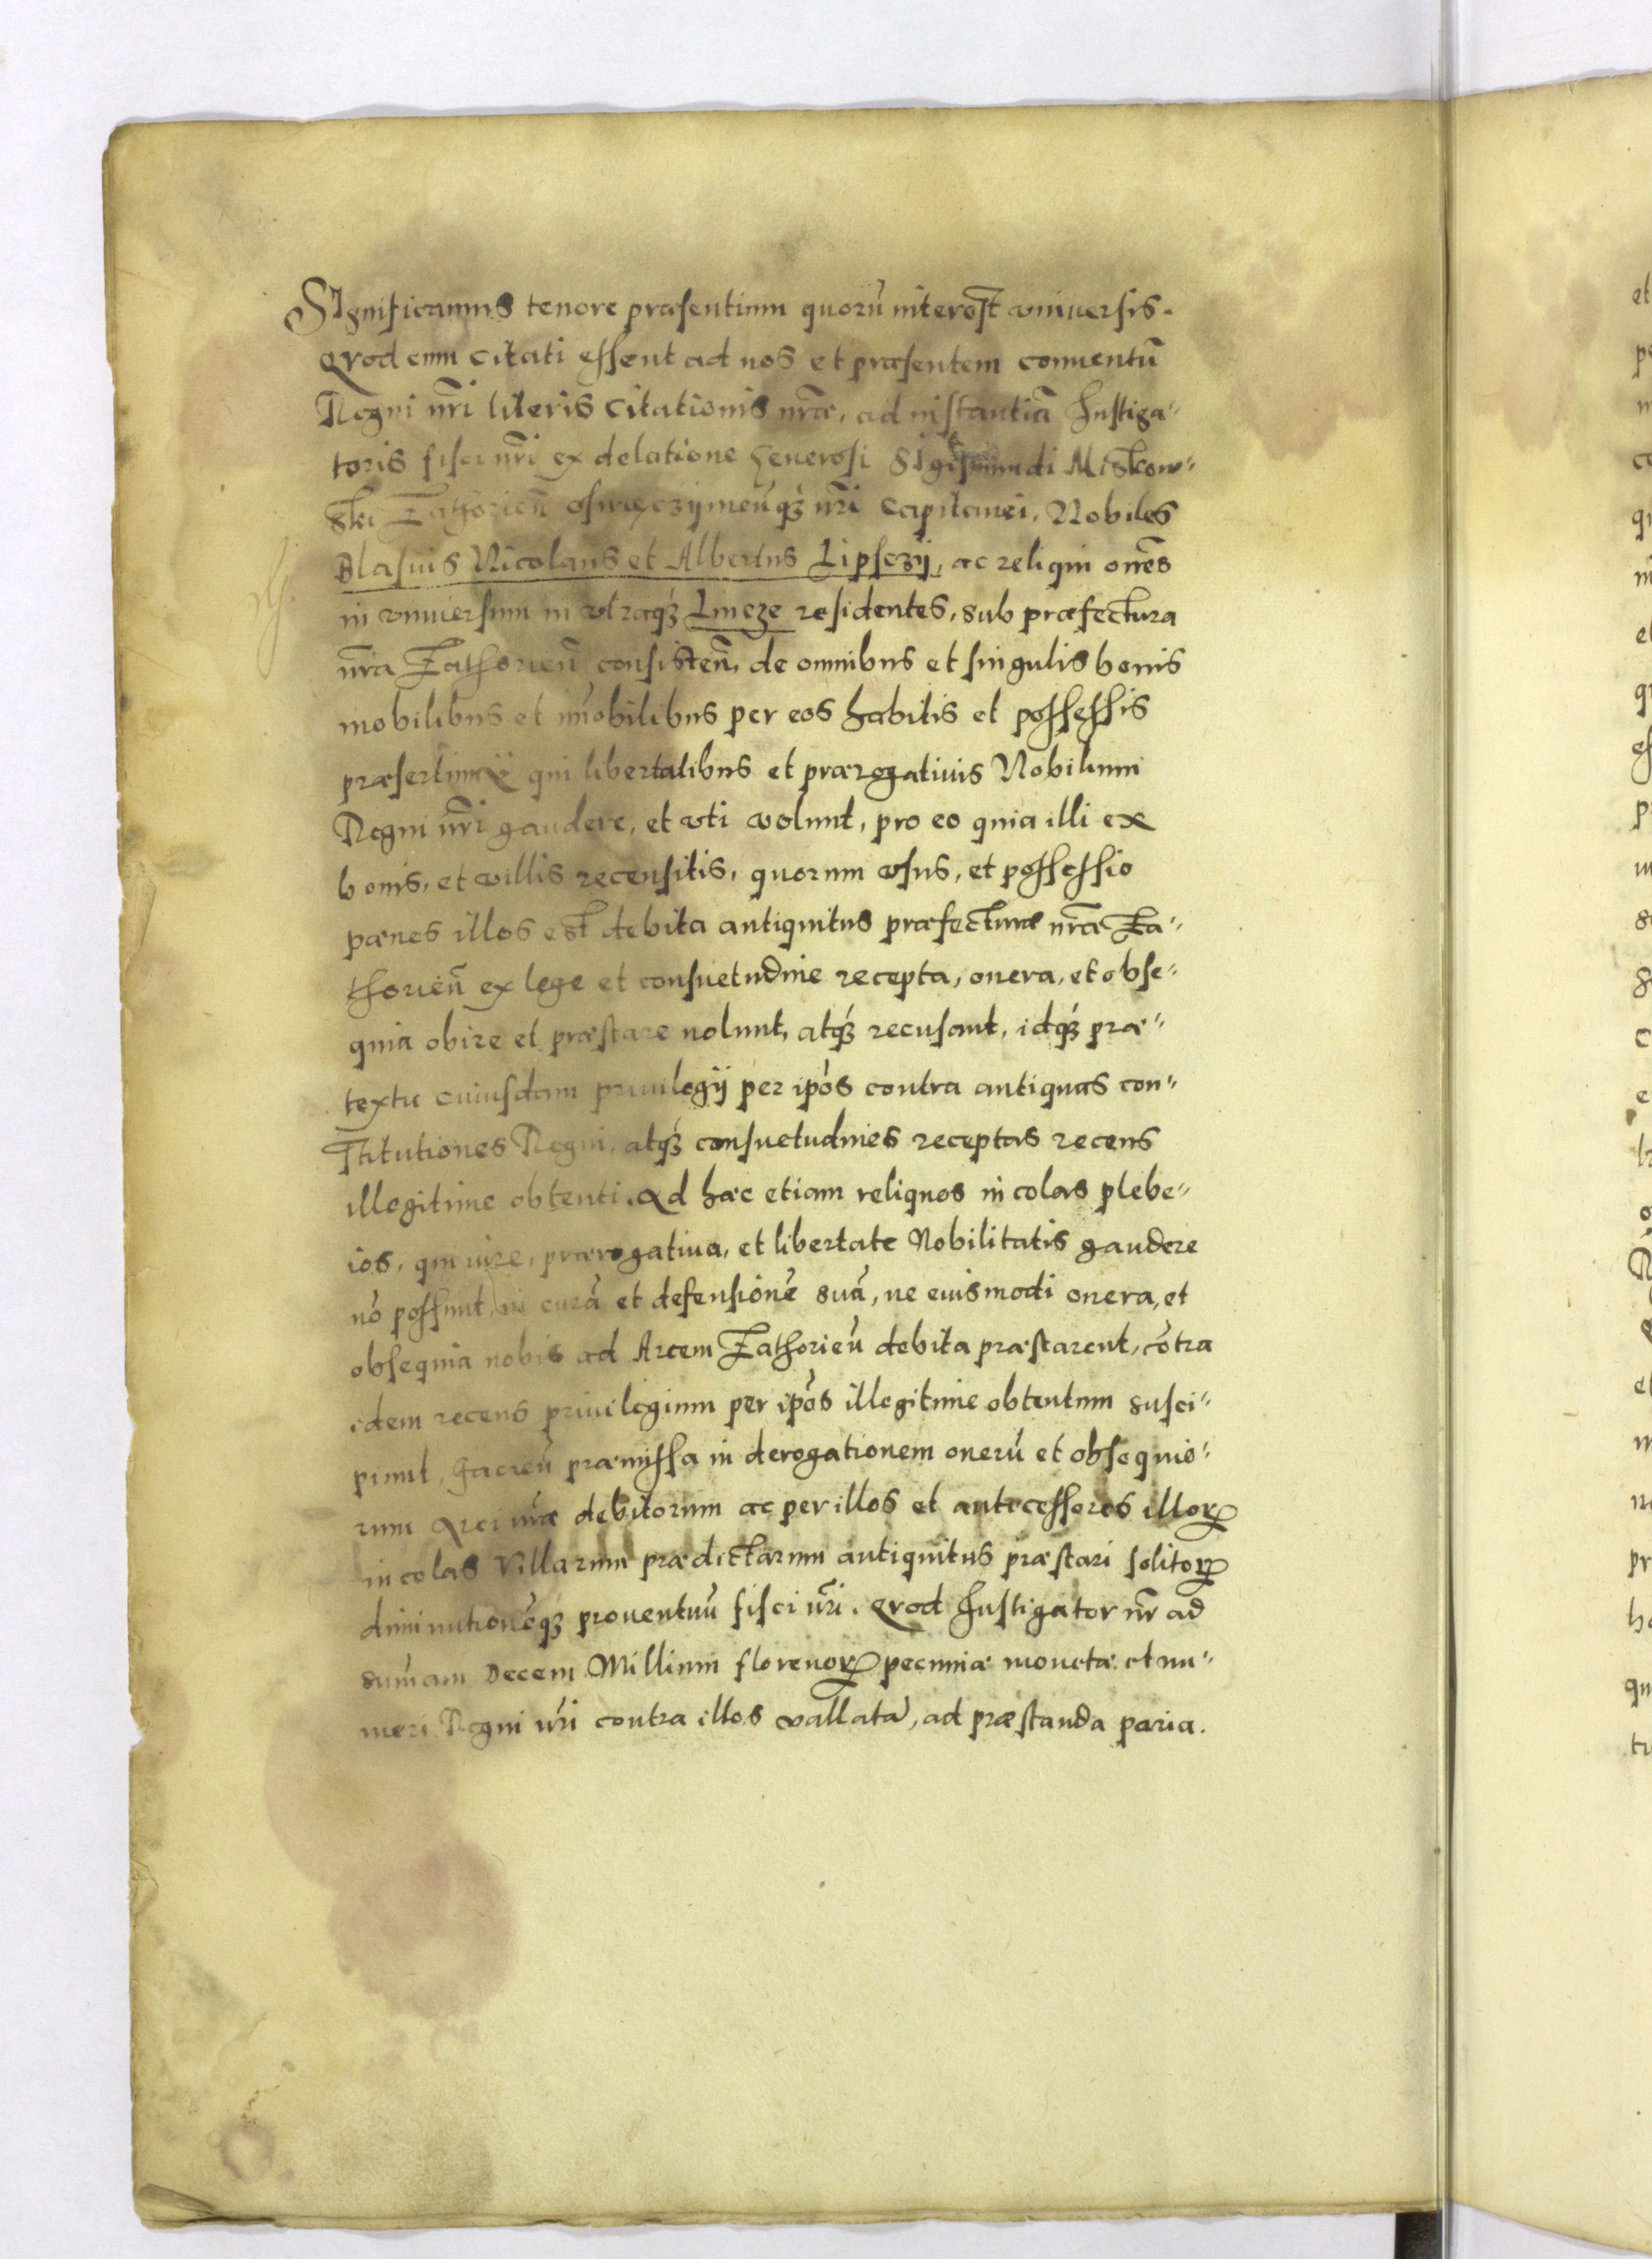 SIgnificamus tenore præsentium quorū interest vniuersis.
Qvod cum citati essent ad nos et præsentem conuentū
Regni nr̄i literis citationis nr̄æ, ad instantiā Instiga-
toris fisci nr̄i ex delatione Generosi SIgismundi Miskow-
ski Zathorien̄ Oswięczijmen̄qꝫ nr̄i Capitanei, Nobiles
Blasius Nicolaus et Albertus Lipsczij, ac reliqui oēs
in vniuersum in vtraqꝫ Lincze residentes, sub præfectura
nr̄a Zathorien̄ consisten̄, de omnibus et singulis bonis
mobilibus et im̄obilibus per eos habitis et possessis
præsertim ij qui libertatibus et prærogatiuis Nobilium
Regni nr̄i gaudere, et vti volunt, pro eo quia illi ex
bonis, et villis recensitis, quorum vsus, et possessio
pænes illos est debita antiquitus præfecturæ nr̄æ Za-
thorien̄ ex lege et consuetudine recepta, onera, et obse-
quia obire et præstare nolunt, atqꝫ recusant, idqꝫ præ-
textu cuiusdam priuilegij per ip̄os contra antiquas con-
stitutiones Regni, atqꝫ consuetudines receptas recens
illegitime obtenti. Ad hæc etiam reliquos incolas plebe-
ios, qui iure, prærogatiua, et libertate Nobilitatis gaudere
nō possunt, in curā et defensionē suā, ne eiusmodi onera, et
obsequia nobis ad Arcem Zathorien̄ debita præstarent, cōtra
idem recens priuilegium per ip̄os illegitime obtentum susci-
piunt, facien̄ præmissa in derogationem onerū et obsequio-
rum Arci nr̄æ debitorum ac per illos et antecessores illorꝝ
incolas Villarum prædictarum antiquitus præstari solitorꝝ
diminutionēqꝫ prouentuū fisci nr̄i. Qvod Instigator nr̄ ad
sum̄am Decem Millium florenorꝝ pecuniæ monetæ et nu-
meri Regni nr̄i contra illos vallata, ad præstanda paria.